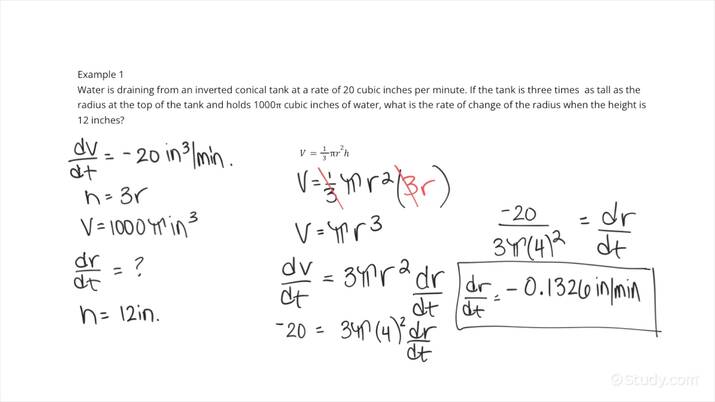 Example 1
Water is draining from an inverted conical tank at a rate of 20 cubic inches per minute. If the tank is three times as tall as the
radius at the top of the tank and holds 1000π cubic inches of water, what is the rate of change of the radius when the height is
12 inches?
dv/dt = -20 in³/min.
h = 3r
V = 1000π in³
dr/dt = ?
h = 12in.
V = 1/3 πr²h
V = 1/3 πr²(3r)
V = πr³
dv/dt = 3πr² dr/dt
-20 = 3π(4)² dr/dt
-20/3π(4)² = dr/dt
dr/dt = -0.1326 in/min
©Study.com